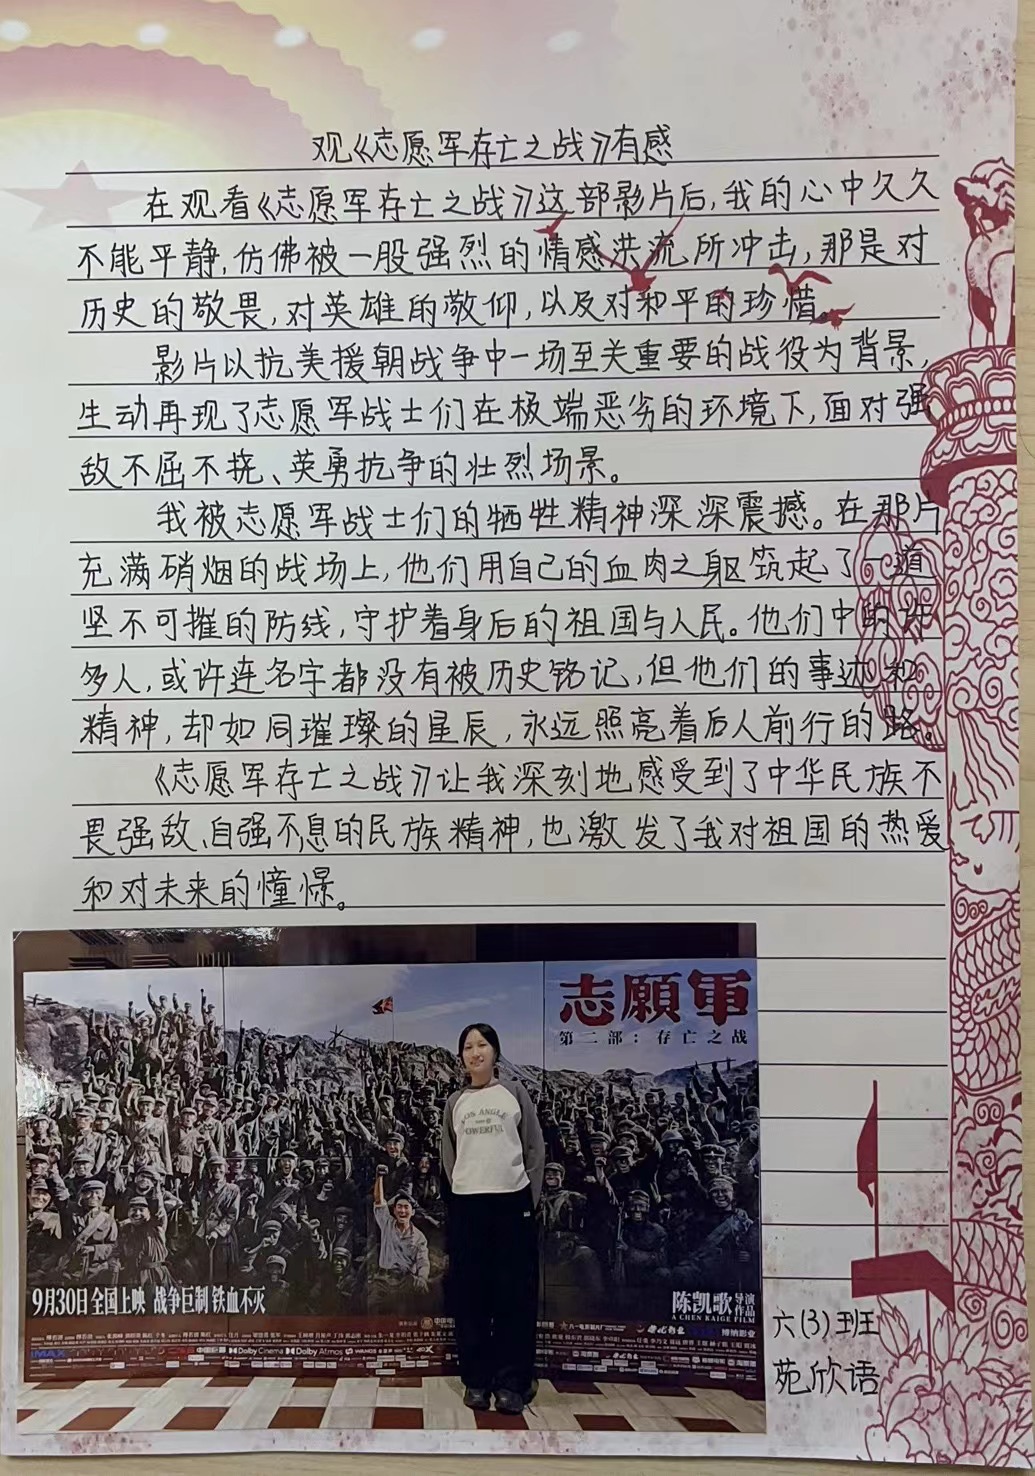 观《志愿军存亡之战》有感
在观看《志愿军存亡之战》这部影片后,我的心中久久
不能平静,仿佛被一股强烈的情感洪流所冲击,那是对
历史的敬畏,对英雄的敬仰,以及对和平的珍惜。
影片以抗美援朝战争中一场至关重要的战役为背景,
生动再现了志愿军战士们在极端恶劣的环境下,面对强
敌不屈不挠、英勇抗争的壮烈场景。
我被志愿军战士们的牺牲精神深深震撼。在那片
充满硝烟的战场上,他们用自己的血肉之躯筑起了一道
坚不可摧的防线,守护着身后的祖国与人民。他们中的许
多人,或许连名字都没有被历史铭记,但他们的事迹和
精神,却如同璀璨的星辰,永远照亮着后人前行的路。
《志愿军存亡之战》让我深刻地感受到了中华民族不
畏强敌、自强不息的民族精神,也激发了我对祖国的热爱
和对未来的憧憬。
志願軍
第二部:存亡之战
LOS ANGLE
POWERFUL
9月30日全国上映 战争巨制 铁血不灭
陈凯歌 导演作品
A CHEN KAIGE FILM
IMAX
Dolby Cinema
Dolby Atmos
博纳影业
六(3)班
苑欣语